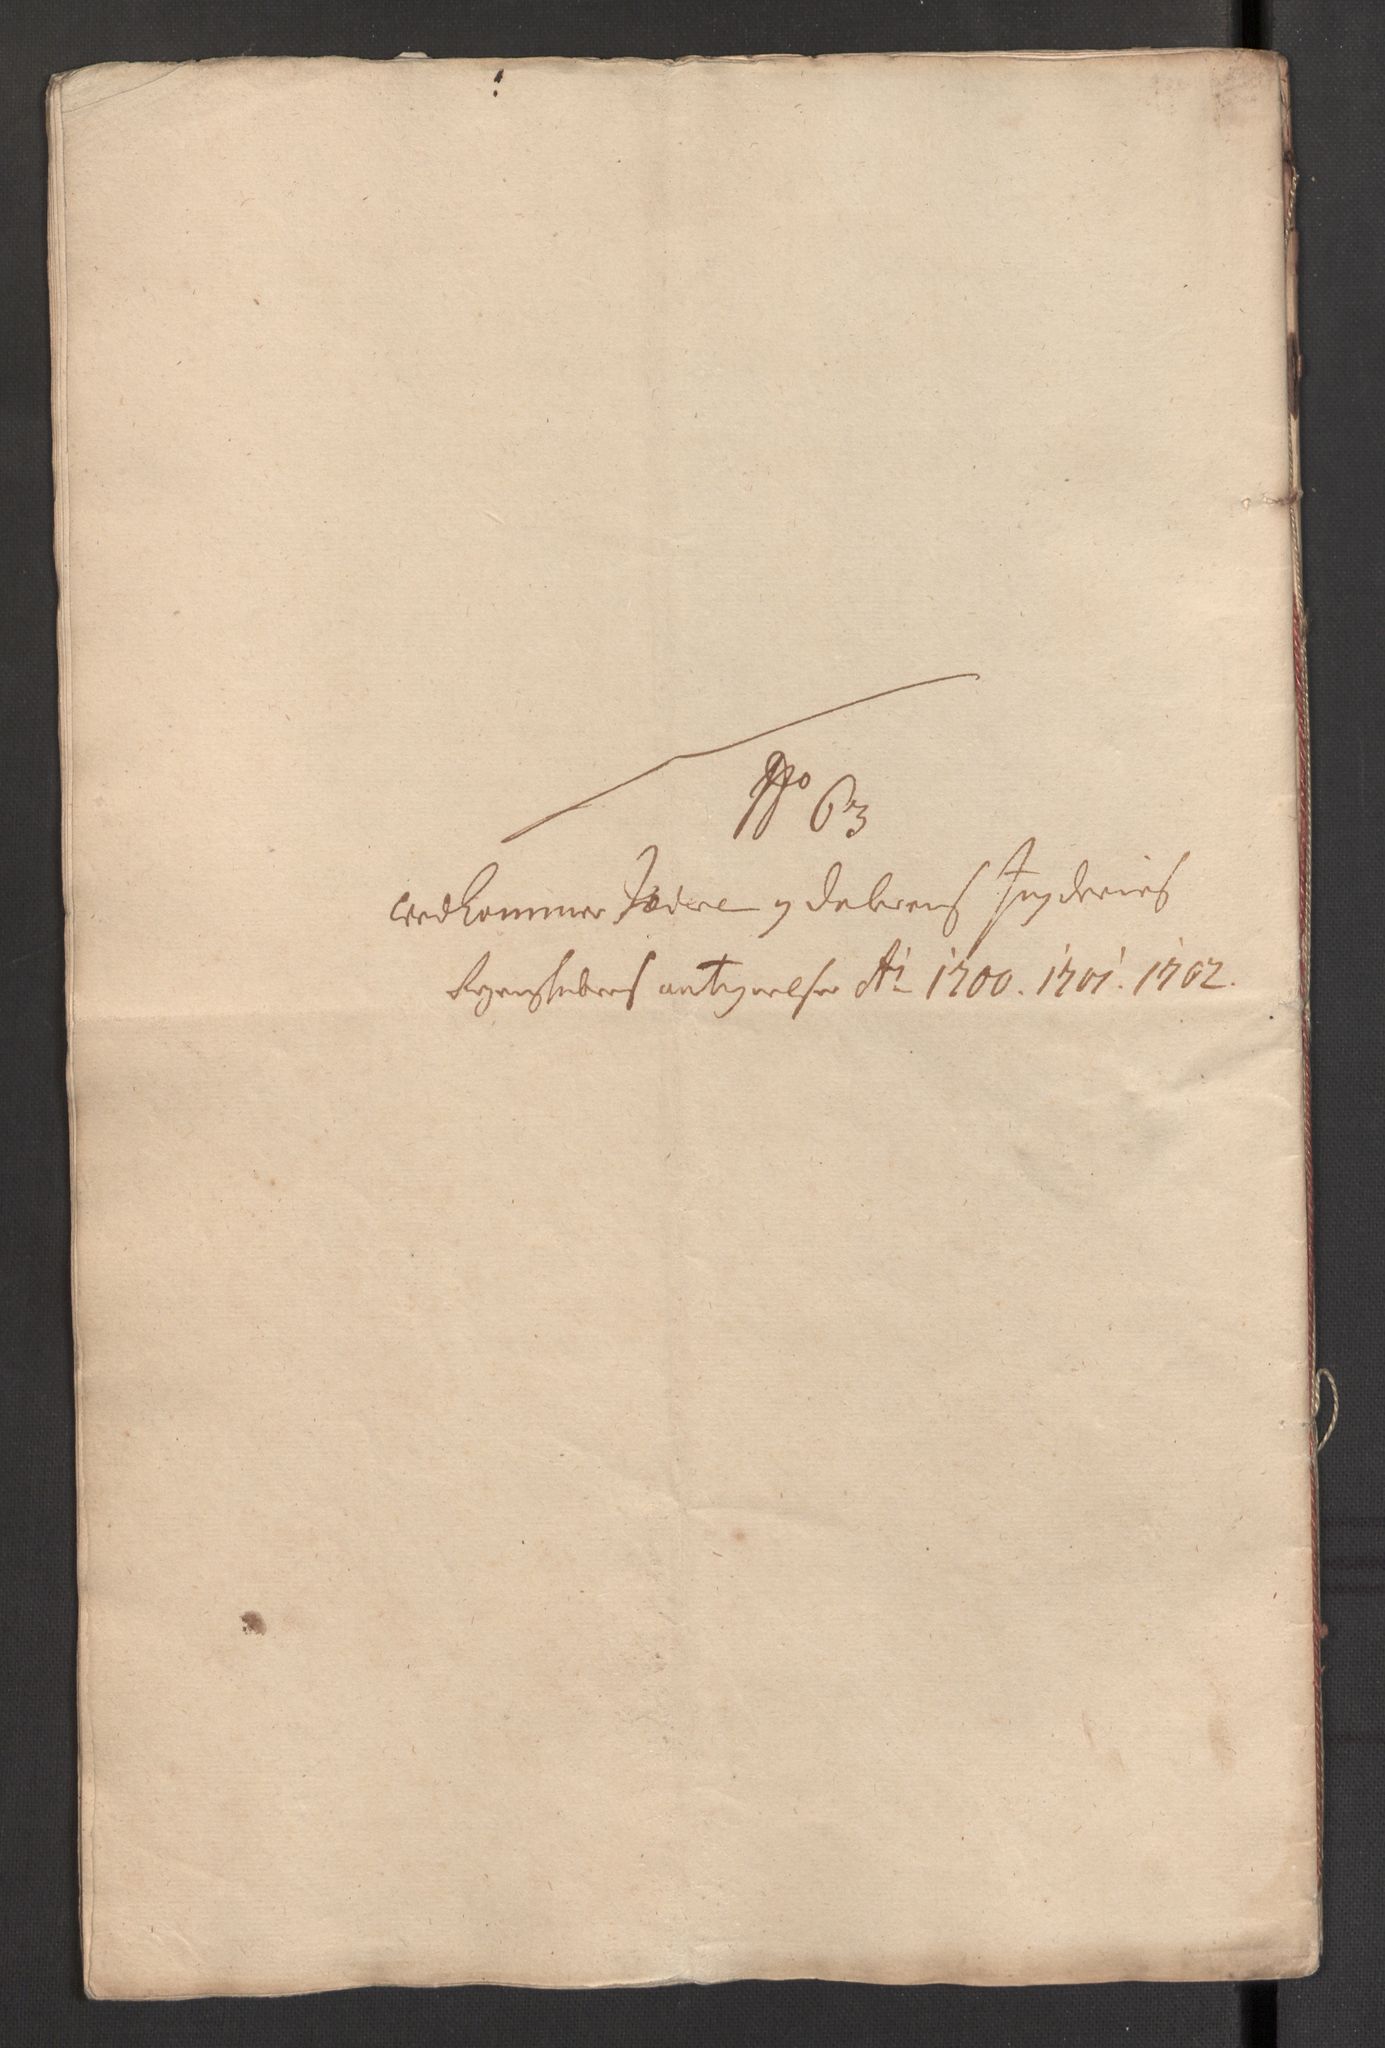 No 63
vedkommer Jædere og Dalernes fogderies
Regenskabers antegnelser A° 1700. 1701. 1702.